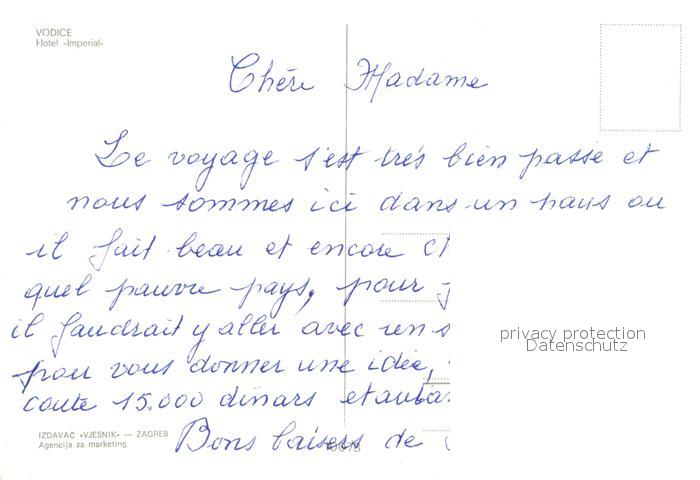 VODICE
Hotel »Imperial«
Chère Madame
Le voyage s'est très bien passé et
nous sommes ici dans un pays ou
il fait beau et encore
quel pauvre pays, pour
il faudrait y aller avec un
pour vous donner une idée,
coute 15.000 dinars et
IZDAVAČ »VJESNIK« — ZAGREB
Agencija za marketing
Bons baisers de
privacy protection
Datenschutz